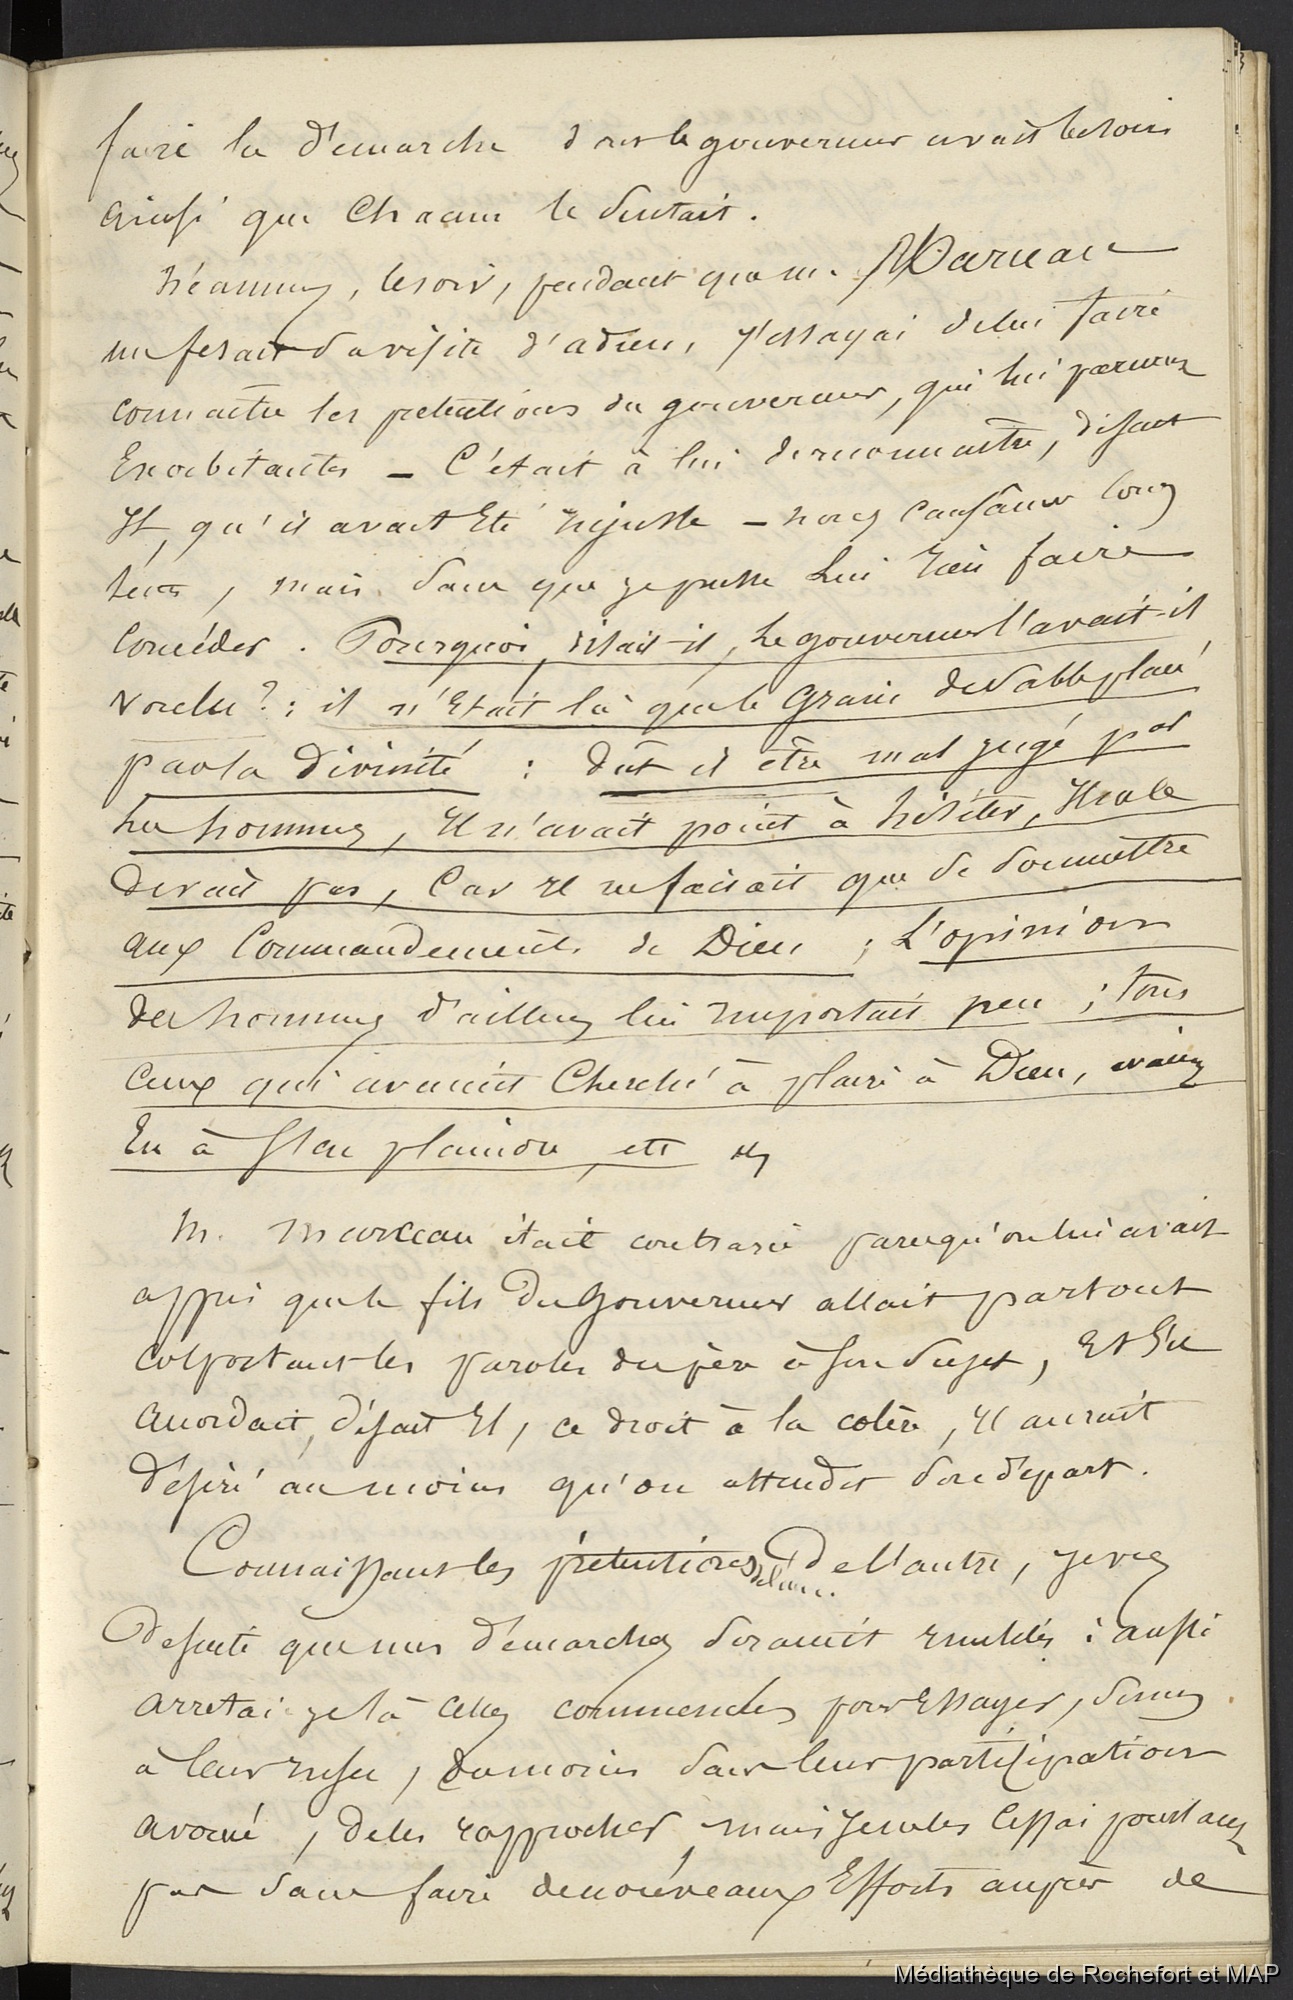 faire la démarche dont le gouverneur avait besoin
ainsi que chacun le sentait.
Néanmoins, le soir, pendant que M. Marceau
me fesait sa visite d'adieu, j'essayai de lui faire
connaitre les prétentions du gouverneur, qui lui parurent
Exorbitantes _ C'était à lui de reconnaitre, disait
Il, qu'il avait Eté injuste _ nous causâmes long
tems, mais sans que je pusse lui rien faire
Concéder. Pourquoi, disait-il, le gouverneur l'avait-il
voulu ? : il n'Etait là que le Grain de sable placé
par la Divinité : dut il être mal jugé par
les hommes, Il n'avait point à hésiter, Il ne le
devait pas, Car Il ne faisait que se soumettre
aux Commandements de Dieu ; L'opinion
des hommes d'ailleurs lui importait peu ; tous
ceux qui avaient Cherché à plaire à Dieu, avaient
Eu à s'en plaindre, etc
M. Marceau était contrarié parcequ'on lui avait
appris que le fils du Gouverneur allait partout
colportant les paroles du père à son sujet, Et s'il
accordait, disait Il, ce droit à la colère, Il aurait
désiré au moins qu'on attendit son départ.
Connaissant les prétentions de l'un. De l'autre, je vis
De suite que mes démarches seraient inutiles : aussi
arretai-je là celles commencées pour Essayer, sinon
à leur insu, du moins sans leur participation
avouée, de les rapprocher mais je ne les cessai pourtant
pas sans faire de nouveaux Efforts auprès de
Médiathèque de Rochefort et MAP